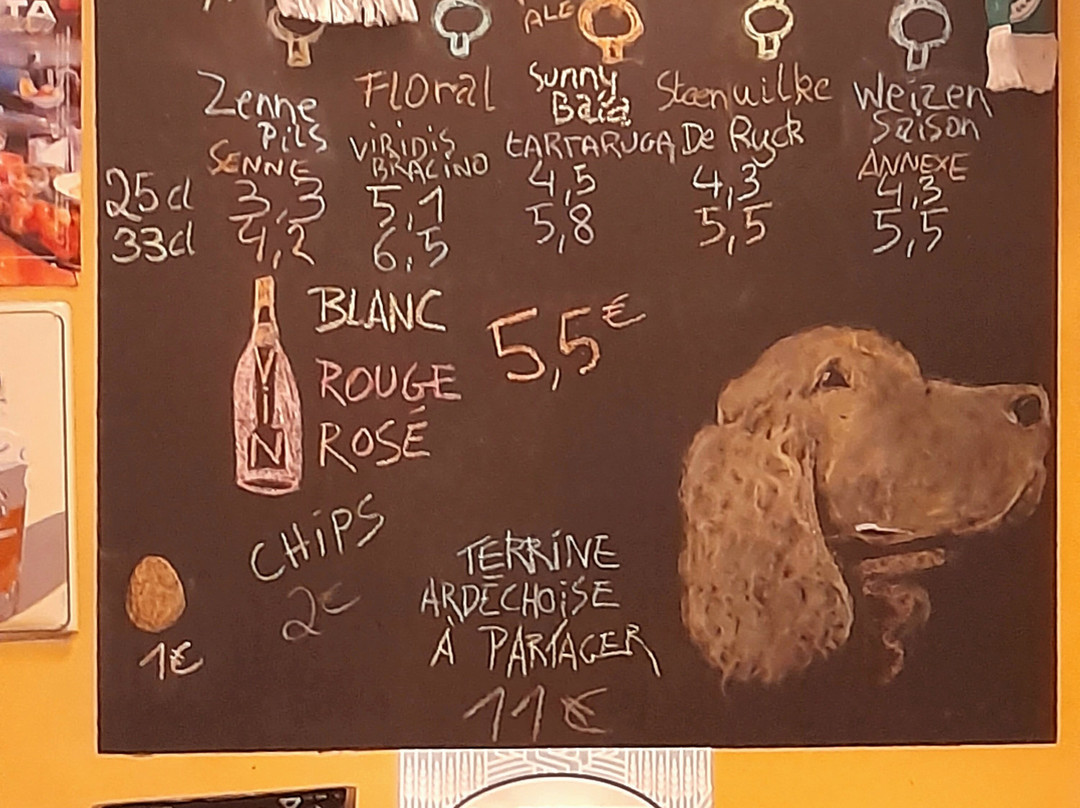 TA
ALE
Zenne Pils
SENNE
Floral
VIRIDIS BRACINO
Sunny Baia
TARTARUGA
Steenuilke
De Ryck
Weizen Saison
ANNEXE
25cl 3,3 5,1 4,5 4,3 4,3
33cl 4,2 6,5 5,8 5,5 5,5
ViN
BLANC
ROUGE
ROSÉ
5,5€
CHiPS
2€
1€
TERRiNE
ARDÉCHOiSE
À PARTAGER
11€